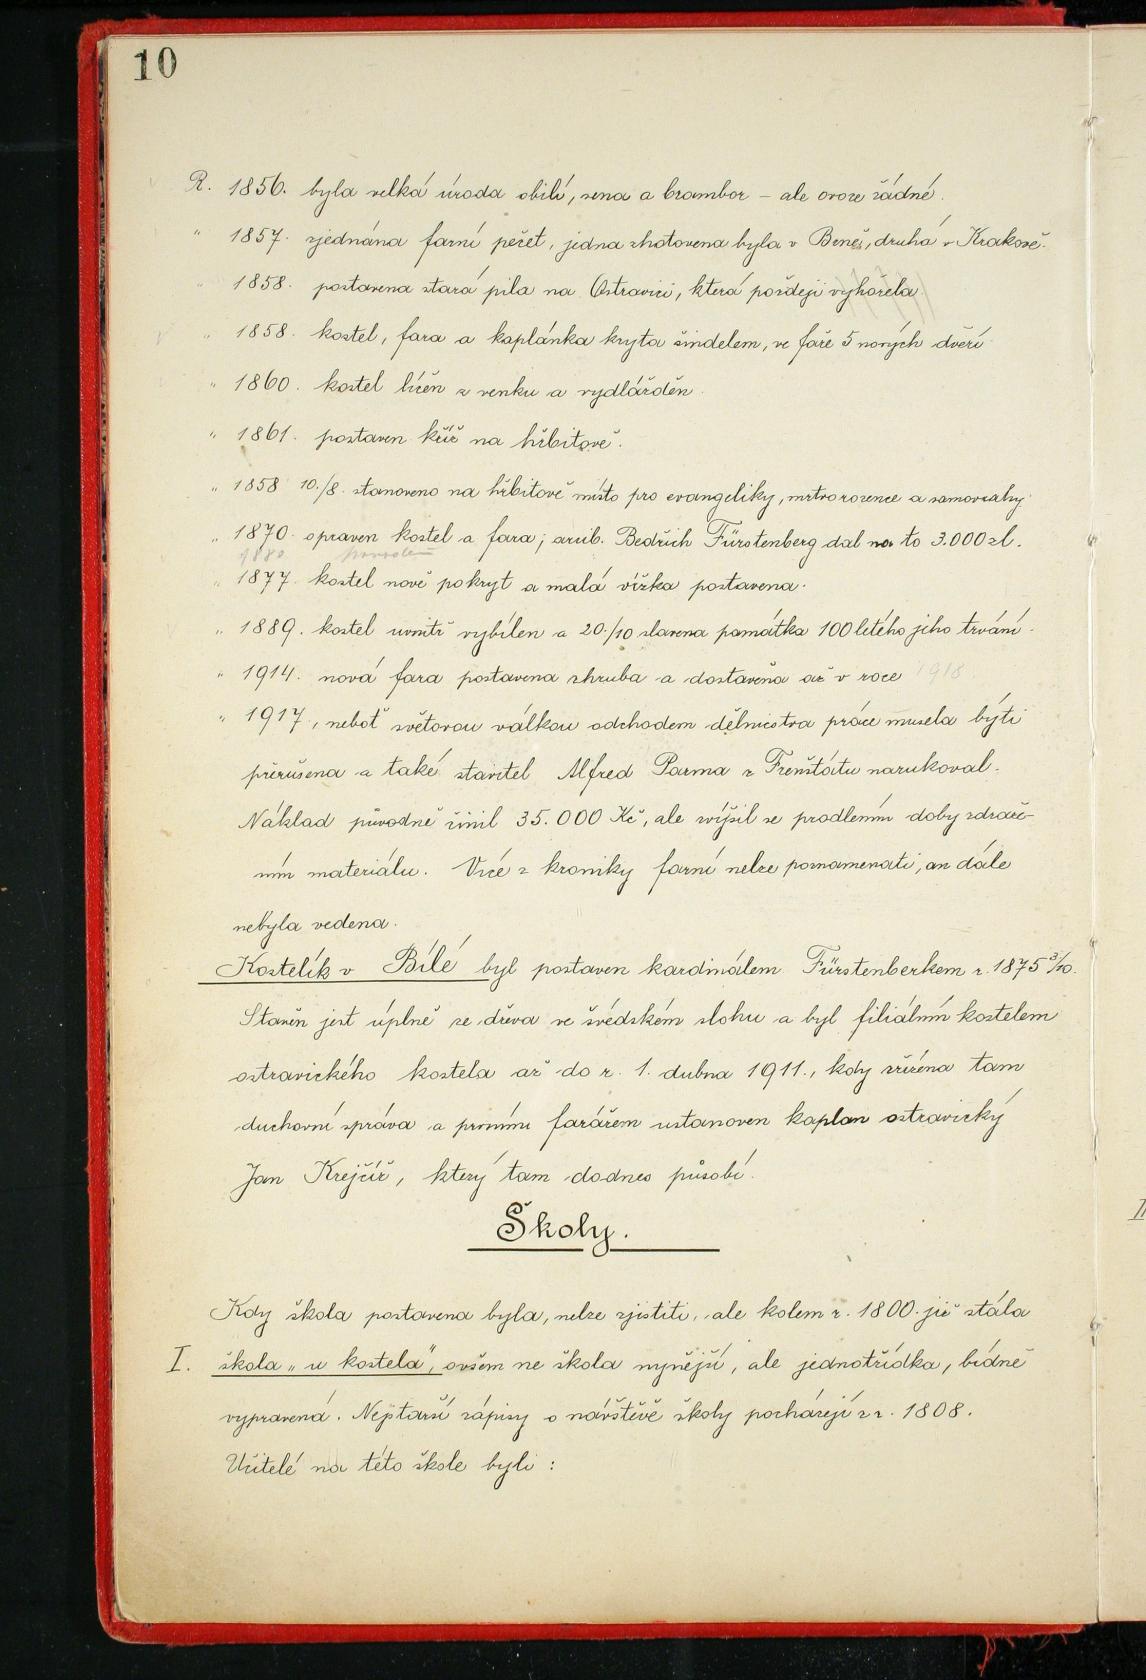 10
R. 1856. byla velká úroda obilí, sena a brambor – ale ovoce žádné.
" 1857. zjednána farní pečet, jedna zhotovena byla v Beneš, druhá v Krakově.
" 1858. postavena stará pila na Ostravici, která později vyhořela
" 1858. kostel, fara a kaplánka kryta šindelem, ve faře 5 nových dveří
" 1860. kostel líčen z venku a vydlážděn.
" 1861. postaven kříž na hřbitově.
" 1858 10./8. stanoveno na hřbitově místo pro evangeliky, mrtvorozence a samovrahy
" 1870. opraven kostel a fara; arcib. Bedřich Fürstenberg dal na to 3.000 zl.
1880
" 1877. kostel nově pokryt a malá vížka postavena.
" 1889. kostel uvnitř vybílen a 20./10 slavena památka 100 letého jeho trvání.
" 1914. nová fara postavena zhruba a dostavena až v roce 1918
" 1917, neboť světovou válkou odchodem dělnictva práce musela býti
přerušena a také stavitel Alfred Parma z Frenštátu narukoval.
Náklad původně činil 35.000 Kč, ale zvýšil se prodlením doby zdraže-
ním materiálu. Více z kroniky farní nelze poznamenati, an dále
nebyla vedena.
Kostelík v Bílé byl postaven kardinálem Fürstenberkem r. 1875 3/10.
Stavěn jest úplně ze dřeva ve švédském slohu a byl filiálním kostelem
ostravického kostela až do r. 1. dubna 1911., kdy zřízena tam
duchovní správa a prvním farářem ustanoven kaplan ostravický
Jan Krejčíř, který tam dodnes působí.
Školy.
Kdy škola postavena byla, nelze zjistiti, ale kolem r. 1800. již stála
I. škola „u kostela", ovšem ne škola nynější, ale jednotřídka, bídně
vypravená. Nejstarší zápisy o návštěvě školy pocházejí z r. 1808.
Učitelé na této škole byli :